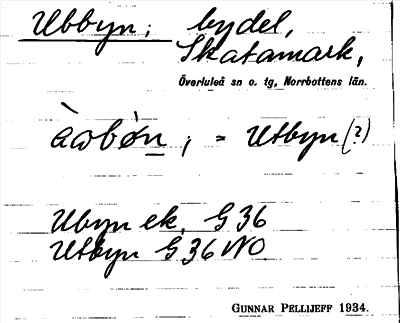 Ubbyn; bydel,
Skatamark,
Överluleå sn o. tg, Norrbottens län.
àωbø̀n; = Utbyn(?)
Ubyn ek. G 36
Utbyn G 36 NO
GUNNAR PELLIJEFF 1934.